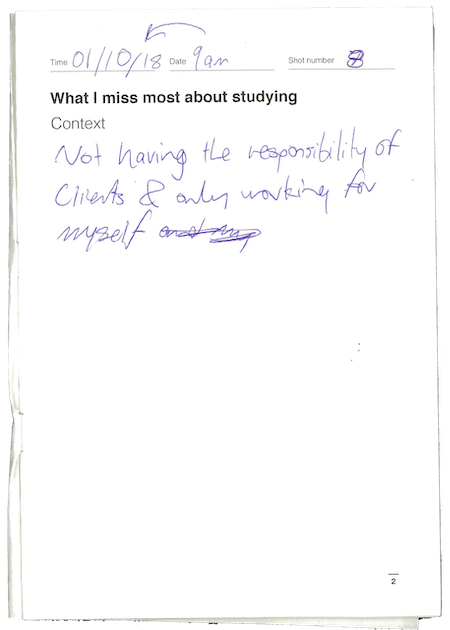 Time 01/10/18 Date 9am Shot number 8
What I miss most about studying
Context
Not having the responsibility of
Clients & only working for
myself
2